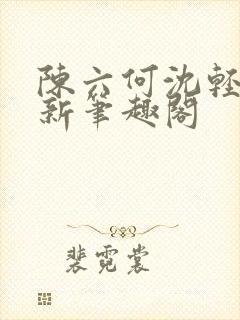 陳六何沈輕
新筆趣閣
裴霓裳